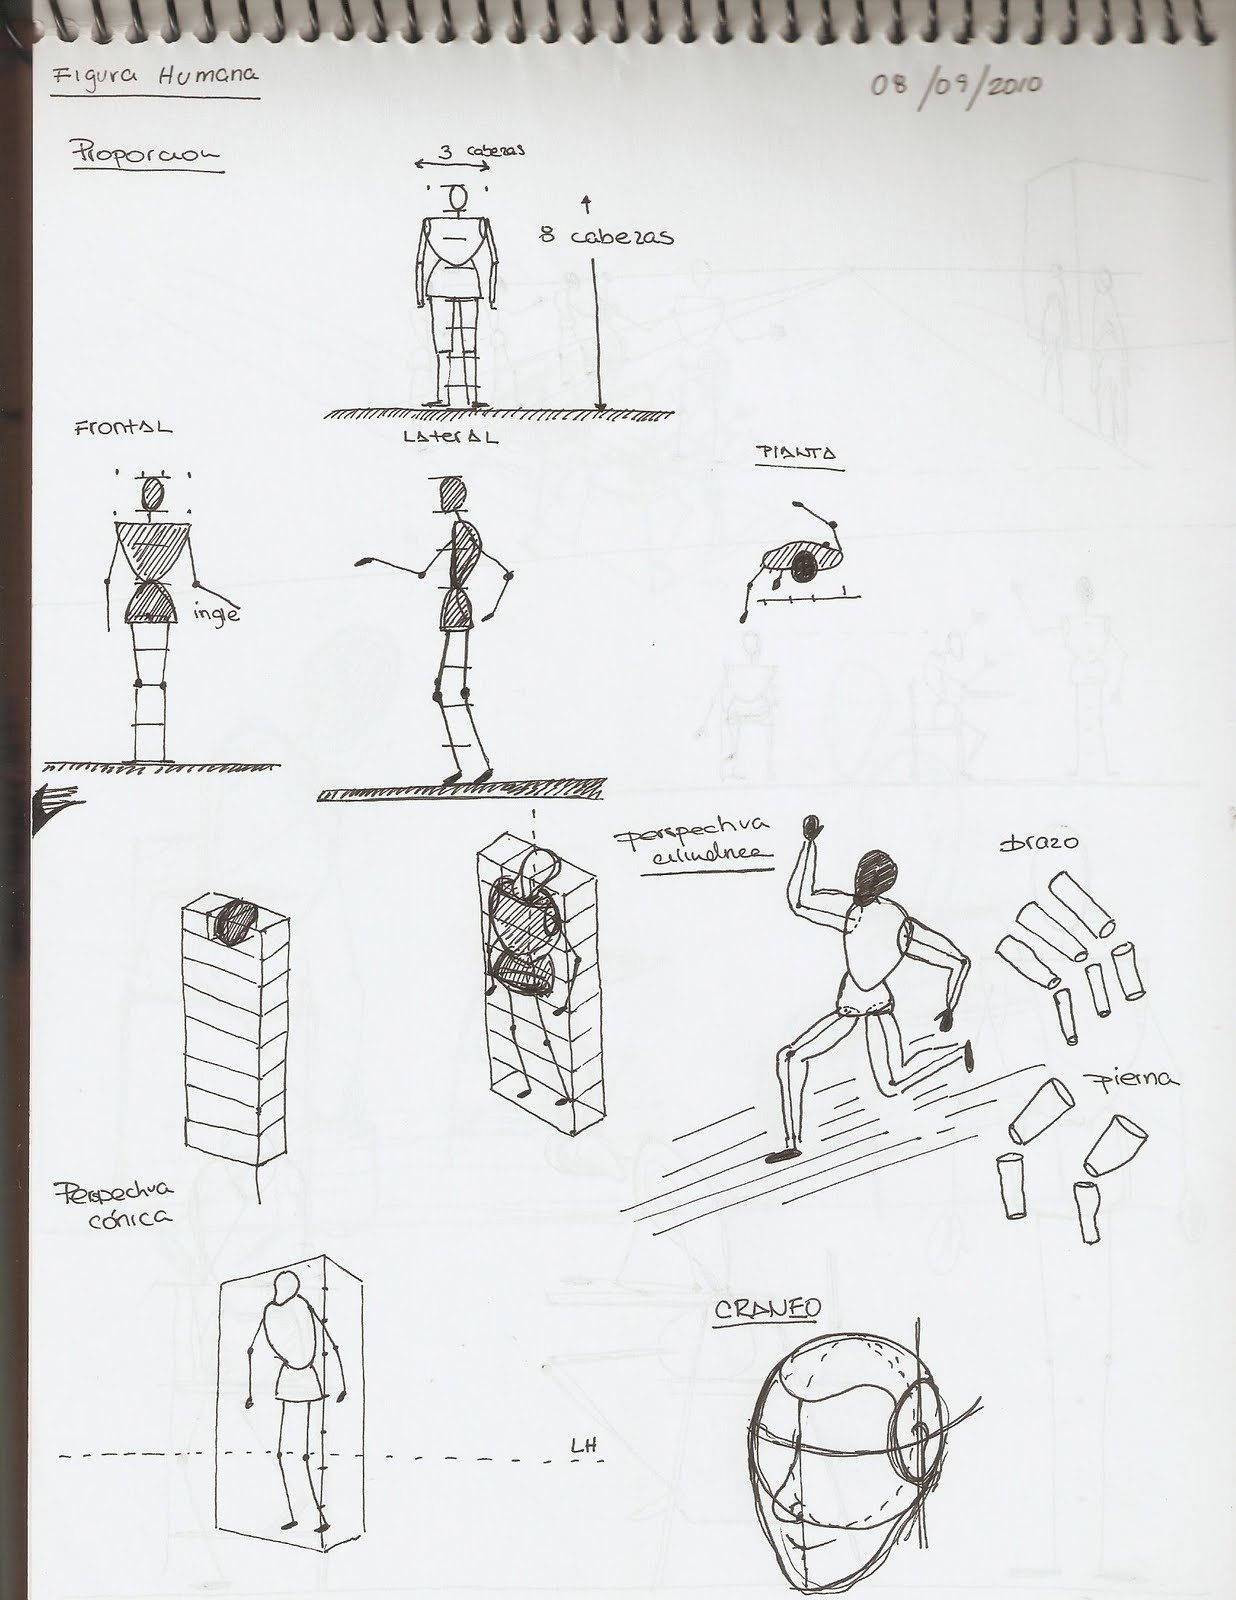 Figura Humana
08/09/2010
Proporcion
3 cabezas
8 cabezas
FRONTAL
LATERAL
PLANTA
ingle
perspectiva
cilindrica
brazo
pierna
Perspectiva
cónica
LH
CRANEO